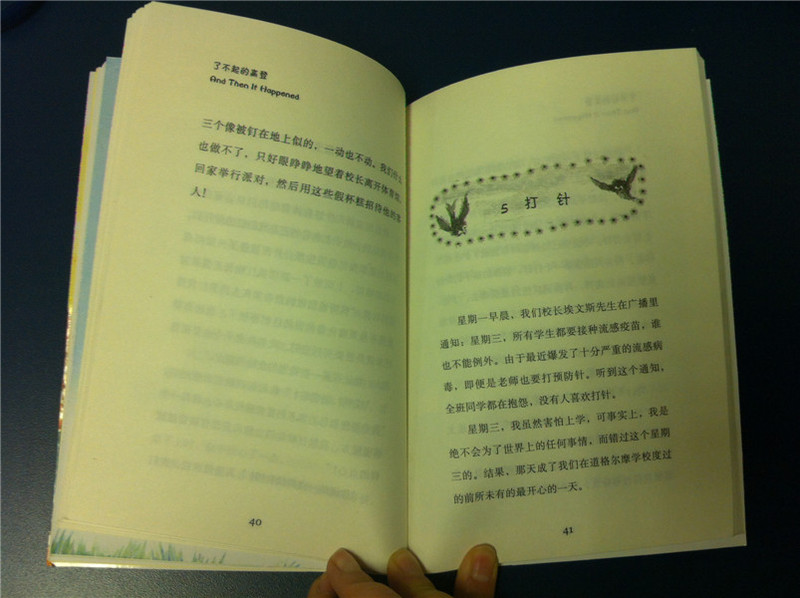 了不起的高登
And Then It Happened
三个像被钉在地上似的，一动也不动。我们什么
也做不了，只好眼睁睁地望着校长离开体育馆，
回家举行派对，然后用这些假杯糕招待他的客
人！
40
5 打 针
星期一早晨，我们校长埃文斯先生在广播里
通知：星期三，所有学生都要接种流感疫苗，谁
也不能例外。由于最近爆发了十分严重的流感病
毒，即便是老师也要打预防针。听到这个通知，
全班同学都在抱怨，没有人喜欢打针。
星期三，我虽然害怕上学，可事实上，我是
绝不会为了世界上的任何事情，而错过这个星期
三的。结果，那天成了我们在道格尔摩学校度过
的前所未有的最开心的一天。
41